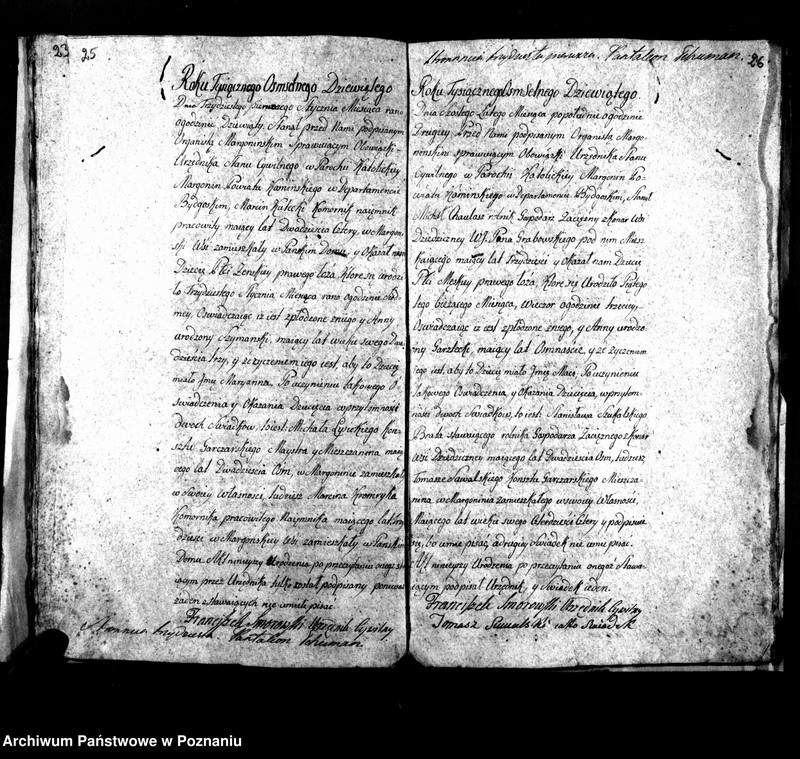 23 25
Roku Tysiącznego Osmsetnego Dziewiątego
Dnia Trzydziestego pierwszego Stycznia Miesiąca rano
ogodzinie Dziewiąty, Stanął przed Nami podpisanym
Organistą Margoninskim Sprawuiącym Obowiązki
Urzędnika Stanu Cywilnego w Parochii Katolickiy
Margonin Powiatu Kaminskiego w Departamencie
Bydgoskim, Marcin Komornik naiemnik
pracowity maiący lat Dwadziescia Cztery, w Margon
ski Wsi zamieszkały w Panskim Domu, y Okazał nam
Dziecię Płci Zenskiey prawego łoza, ktore się urodzi
ło Trzydziestego Stycznia Miesiąca rano ogodzinie
mey, Oswiadczaiąc iz iest zpłodzone zniego y Anny
urodzony Szymanski, maiący lat wieku swego Dwa
dziescia Trzy, y ze zyczeniem iego iest, aby to Dziecię
miało Imię Maryanna. Po uczynieniu takowego O
swiadczenia y Okazania Dziecięcia w przytomnosci
dwoch Swiadkow, to iest: Michała Kon
sztu Garczarskiego Maystra y Mieszczanina maią
cego lat Dwadziescia Osm, w Margoninie zamieszkał
w Swoiey Własnosci, tudziesz Marcina
Komornika pracowitego Naiemnika maiącego lat
dziesci w Margonskiey Wsi zamieszkały w Panskim
Domu. Akt ninieyszy Urodzenia po przeczytaniu onegoz sta
wiącym przez Urzędnika tylko został podpisany poniewaz
zaden z Stawaiących nie umieli pisac
Franciszek Smorowski Urzednik Cywilny
Stronnica trzydziesta Pantaleon Schuman
Stronnica trzydziesta pierwsza. Pantaleon Schuman. 26
Roku Tysiącznego Osmsetnego Dziewiątego
Dnia Szostego Lutego Miesiąca popołudniu ogodzinie
Drugiey Przed Nami podpisanym Organistą Margo
ninskim sprawuiącym Obowiązki Urzędnika Stanu
Cywilnego w Parochii Katolickiy Margonin Po
wiatu Kaminskiego w Departamencie Bydgoskim, Stanął
Michał Chaułasz rolnik Gospodarz Zaciężny z Konar Wsi
Dziedziczney WJ. Pana Grabowskiego pod nim Miesz
kaiącego maiący lat Trzydziesci y Okazał nam Dziecię
Płci Męskiey prawego łoza, ktore się Urodziło Piątego
tego biezącego Miesiąca, wieczor ogodzinie trzeciey,
Oswiadczaiąc iz iest zpłodzone zniego, y Anny urodzo
ny Garstecki, maiący lat Osmnascie, y ze zyczenim
iego iest, aby to Dziecię miało Imię Maciey, Po uczynieniu
takowego Oswiadczenia, y Okazania Dziecięcia, w przytom
nosci dwoch Swiadkow, to iest: Stanisława Szukalskiego
Brata stawaiącego rolnika Gospodarza Zaciężnego z Konar
Wsi Dziedziczney maiącego lat Dwadziescia Osm, tudziesz
Tomasza Suwalskiego Konsztu Garczarskiego Mieszcza
nina, w Margoninie zamieszkałego w swoiey Własnosci,
Maiącego lat wieku swego Czterdziesci Cztery y podpisuie
się, bo umie pisac, a drugi Swiadek nie umie pisac.
Akt ninieyszy Urodzenia po przeczytaniu onegoz stawa
iącym podpisał Urzędnik, y Swiadek ieden.
Franciszek Smorowski Urzednik Cywilny
Tomasz Suwalski jako Swiadek
Archiwum Państwowe w Poznaniu